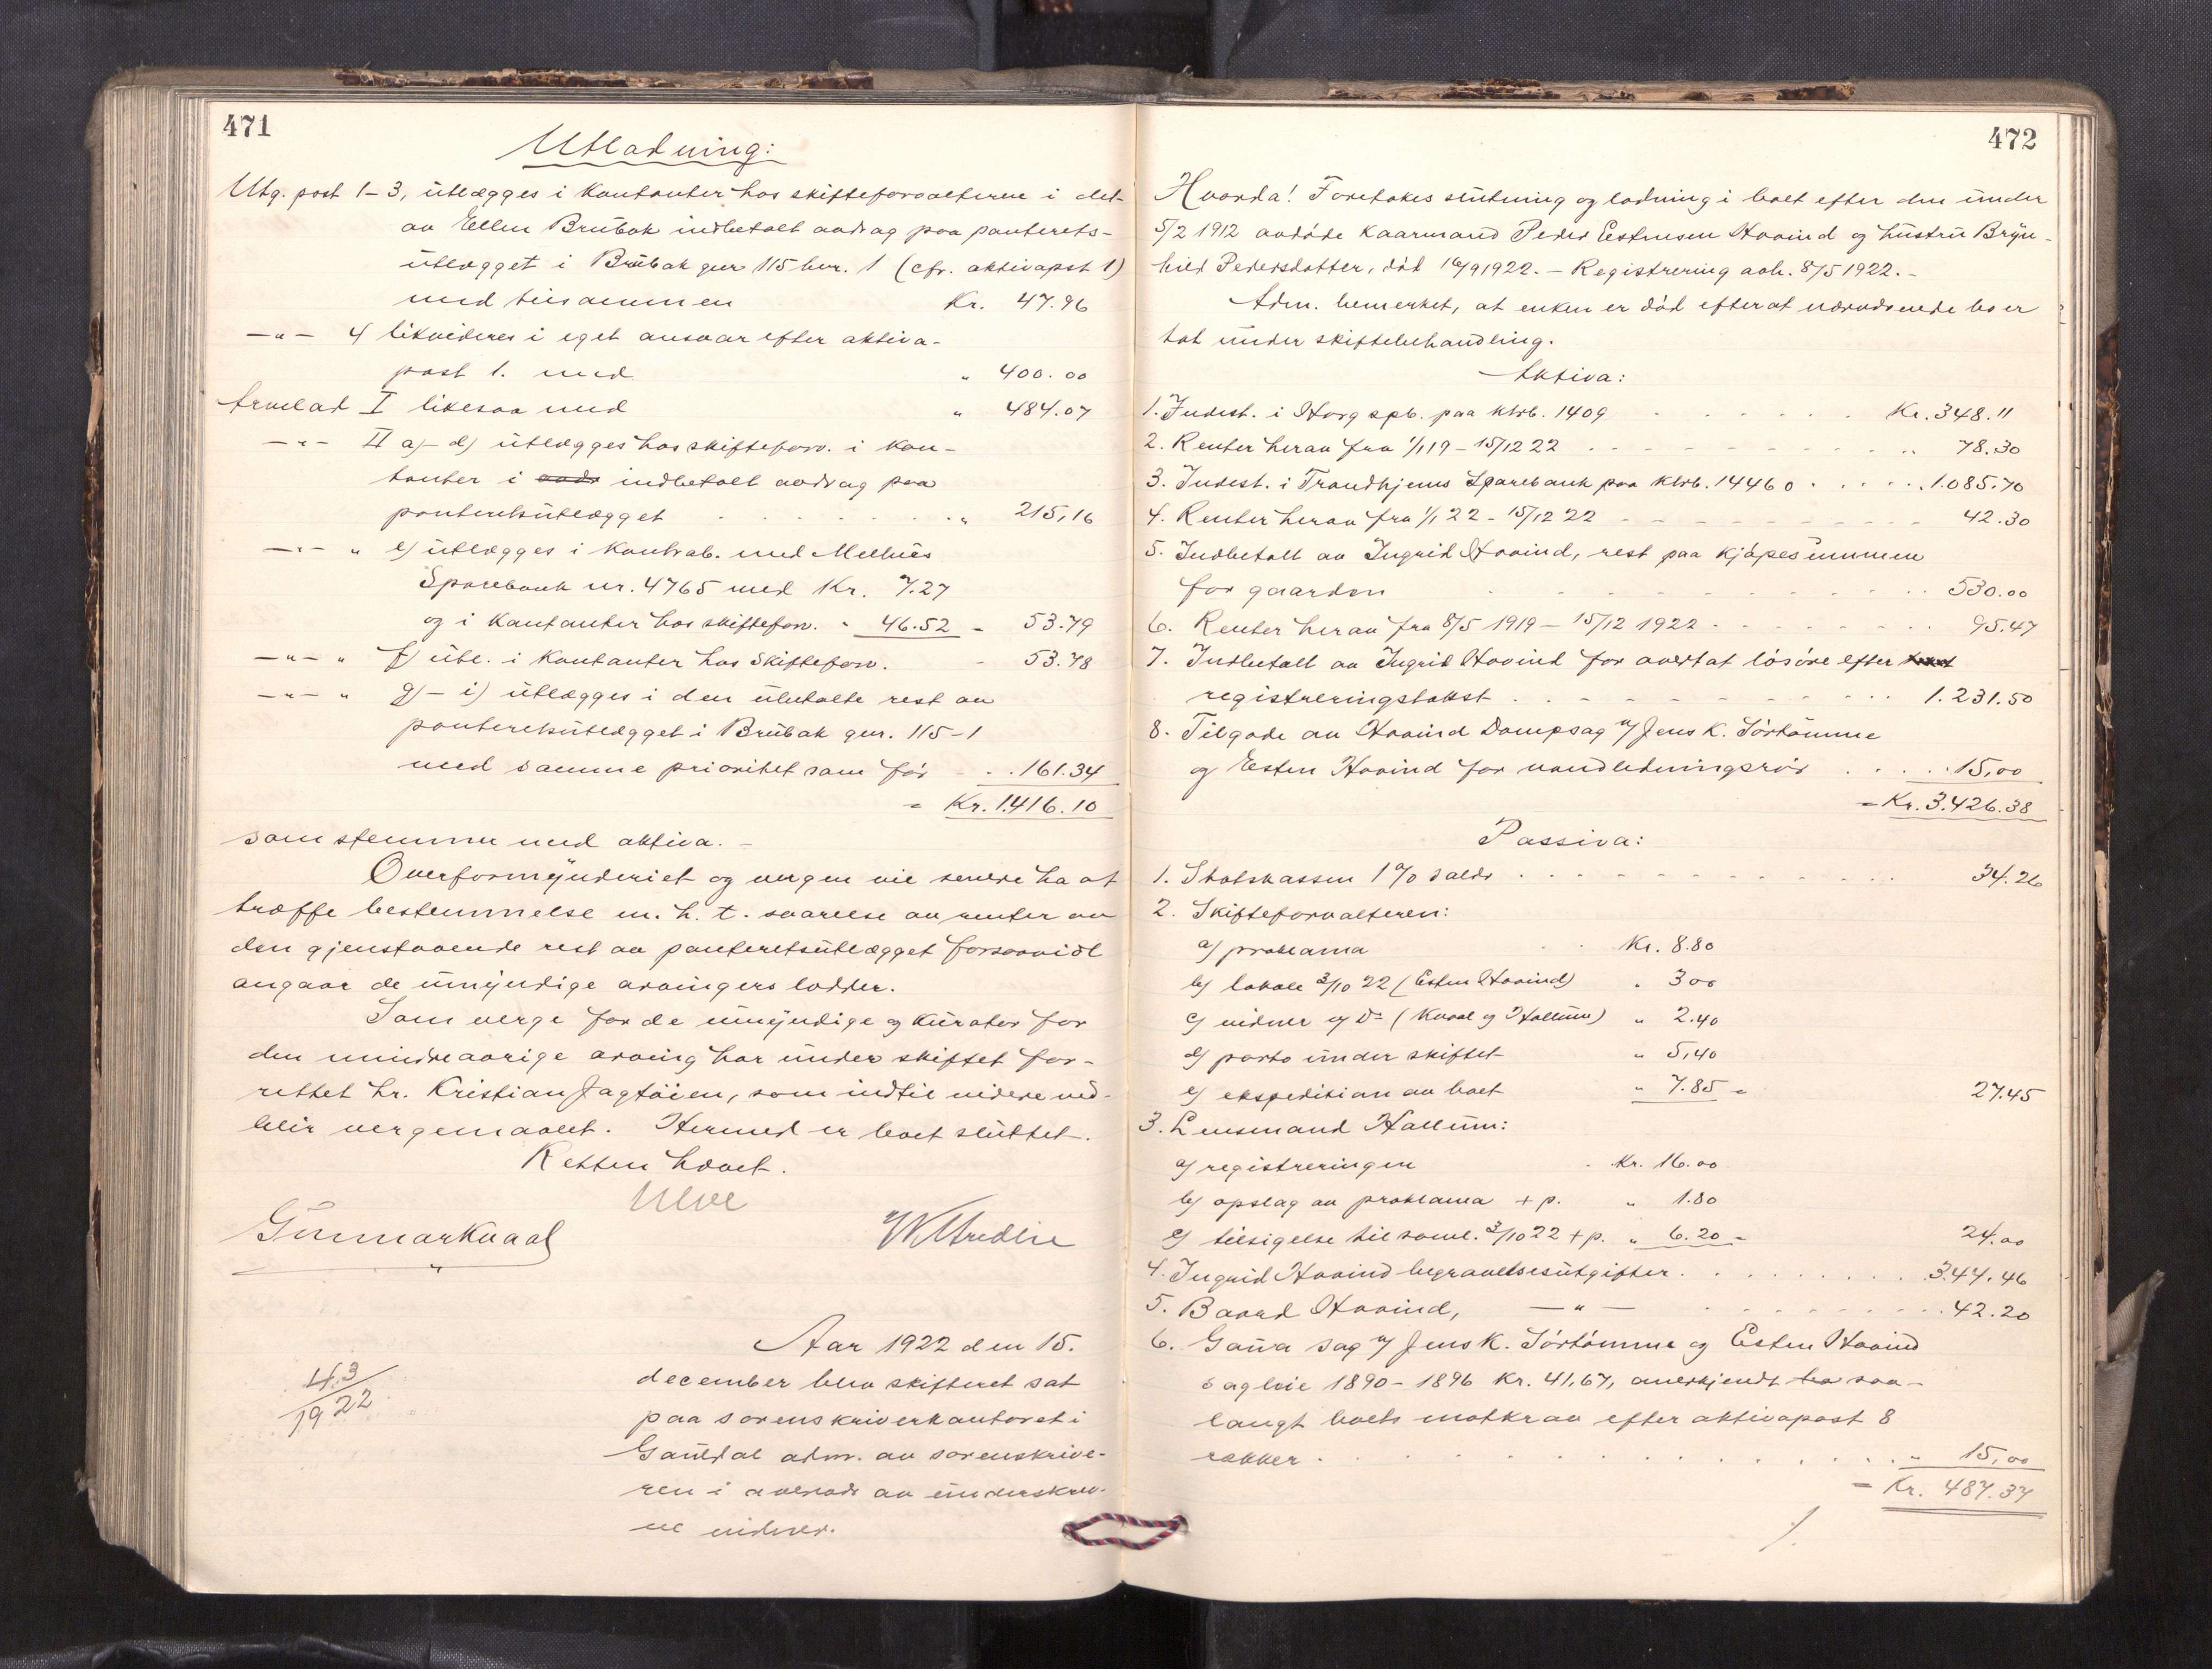 471
Utlodning:
Utg. post 1-3, utlægges i kontanter hos skifteforvalteren i det
av Ellen Brubak indbetalt avdrag paa panterets-
utlægget i Brubak gnr 115 bnr. 1 (cfr. aktivapost 1)
med tilsammen Kr. 47.96
—"— 4 likvideres i eget ansvar efter aktiva-
post 1. med " 400.00
Arvelod I likesaa med " 484.07
—"— II a)-d) utlægges hos skifteforv. i kon-
tanter i indbetalt avdrag paa
panteretsutlægget " 215,16
—"— " e) utlægges i kontrab. med Melhus
Sparebank nr. 4765 med Kr. 7.27
og i kontanter hos skifteforv. " 46.52 = 53.79
—"— " f) utl. i kontanter hos skifteforv. - 53.78
—"— " g)-i) utlægges i den ubetalte rest av
panteretsutlægget i Brubak gnr. 115-1
med samme prioritet som før 161.34
= Kr. 1.416.10
som stemmer med aktiva. -
Overformynderiet og vergen vil senere ha at
træffe bestemmelse m. h. t. svarelse av renter av
den gjenstaaende rest av panteretsutlægget forsaavidt
angaar de umyndige arvingers lodder.
Som verge for de umyndige og kurator for
den mindreaarige arving har under skiftet for-
rettet hr. Kristian Jagtøien, som indtil videre ved-
blir vergemaalet. Hermed er boet sluttet.
Retten hævet.
Ulve
Gunnar Kvaal
43/1922
Aar 1922 den 15.
december blev skifteret sat
paa sorenskriverkontoret i
Gauldal adm. av sorenskrive-
ren i overvær av underskrev-
ne vidner.
472
Hvorda! Foretokes slutning og lodning i boet efter den under
5/2 1912 avdøde kaarmand Peder Estensen Hovind og hustru Bryn-
hild Pedersdatter, død 16/9 1922. - Registrering avh. 8/5 1922. -
Adm. bemerket, at enken er død efterat nærværende bo er
tat under skiftebehandling.
Aktiva:
1. Indest. i Horg spb. paa ktrb. 1409 Kr. 348.11
2. Renter herav fra 1/1 19 - 15/12 22 " 78.30
3. Indest. i Trondhjems Sparebank paa ktrb. 14460 " 1.085.70
4. Renter herav fra 1/1 22 - 15/12 22 42.30
5. Indbetalt av Ingrid Hovind, rest paa kjøpesummen
for gaarden 530.00
6. Renter herav fra 8/5 1919 - 15/12 1922 95.47
7. Indbetalt av Ingrid Hovind for overtat løsøre efter
registreringstakst 1.231.50
8. Tilgode av Hovind Dampsag v/ Jens K. Sørtømme
og Esten Hovind for vandledningsrør 15,00
= Kr. 3.426.38
Passiva:
1. Statskassen 1% saldo 34.26
2. Skifteforvalteren:
a) proklama Kr. 8.80
b) lokale 3/10 22 (Esten Hovind) " 3 00
c) vidner og Do (Kvaal og Hallum) " 2.40
d) porto under skiftet " 5,40
e) ekspedition av boet " 7.85 = 27.45
3. Lensmand Hallum:
a) registreringen Kr. 16.00
b) opslag av proklama + p. " 1.80
c) tilsigelse til saml. 3/10 22 + p. " 6.20 = 24.00
4. Ingrid Hovind begravelsesutgifter 344.46
5. Baard Hovind, —"— 42.20
6. Gaua sag v/ Jens K. Sørtømme og Esten Hovind
sagleie 1890-1896 Kr. 41,67, anerkjendt saa-
langt boets motkrav efter aktivapost 8
rækker " 15,00
= Kr. 487.37
/.